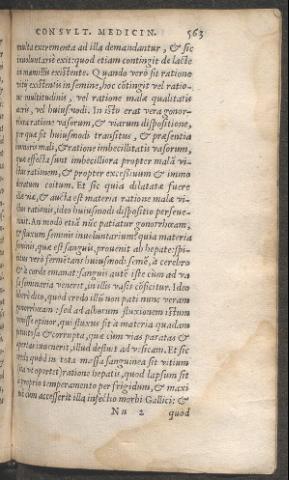 CONSVLT. MEDICIN. 563
multa excrementa ad illa demandantur, & sic
inuoluntariè exit: quod etiam contingit de lacte
in mamillis existente. Quando verò sit ratione
vitij existentis in semine, hoc cōtingit vel ratio-
ne multitudinis, vel ratione malæ qualitatis
, vel huiusmodi. In isto erat vera gonor-
ratione vasorum, & viarum dispositione,
quæ sit huiusmodi transitus, & præsentia
mali, & ratione imbecillitatis vasorum,
quæ effecta sunt imbecilliora propter malā vi-
ratione, & propter excessiuum & immo
coitum. Et sic quia dilatatæ fuere
viæ, & aucta est materia ratione malæ vi-
rationis, ideo huiusmodi dispositio perseue-
. An modò etiā nūc patiatur gonorrhœam,
fluxum seminis inuoluntarium? quia materia
seminis, quæ est sanguis, prouenit ab hepate: spi-
verò fermētans huiusmodi semē, à cerebro
& à corde emanat: sanguis autē iste cùm ad va
sa seminaria venerit, in illis vasis cōficitur. Ideo
dico, quòd credo illū non pati nunc veram
gonorrhœam: sed ad alborum fluxionem istum
opinor, qui fluxus sit à materia quadam
& corrupta, quæ cùm vias paratas &
inuenerit, illud defluit ad vesicam. Et sic
quòd in tota massa sanguinea sit vitium
ratione hepatis, quod lapsum sit
à proprio temperamento per frigidum, & maxi
cùm accesserit illa infectio morbi Gallici: &
Nn 2 quod